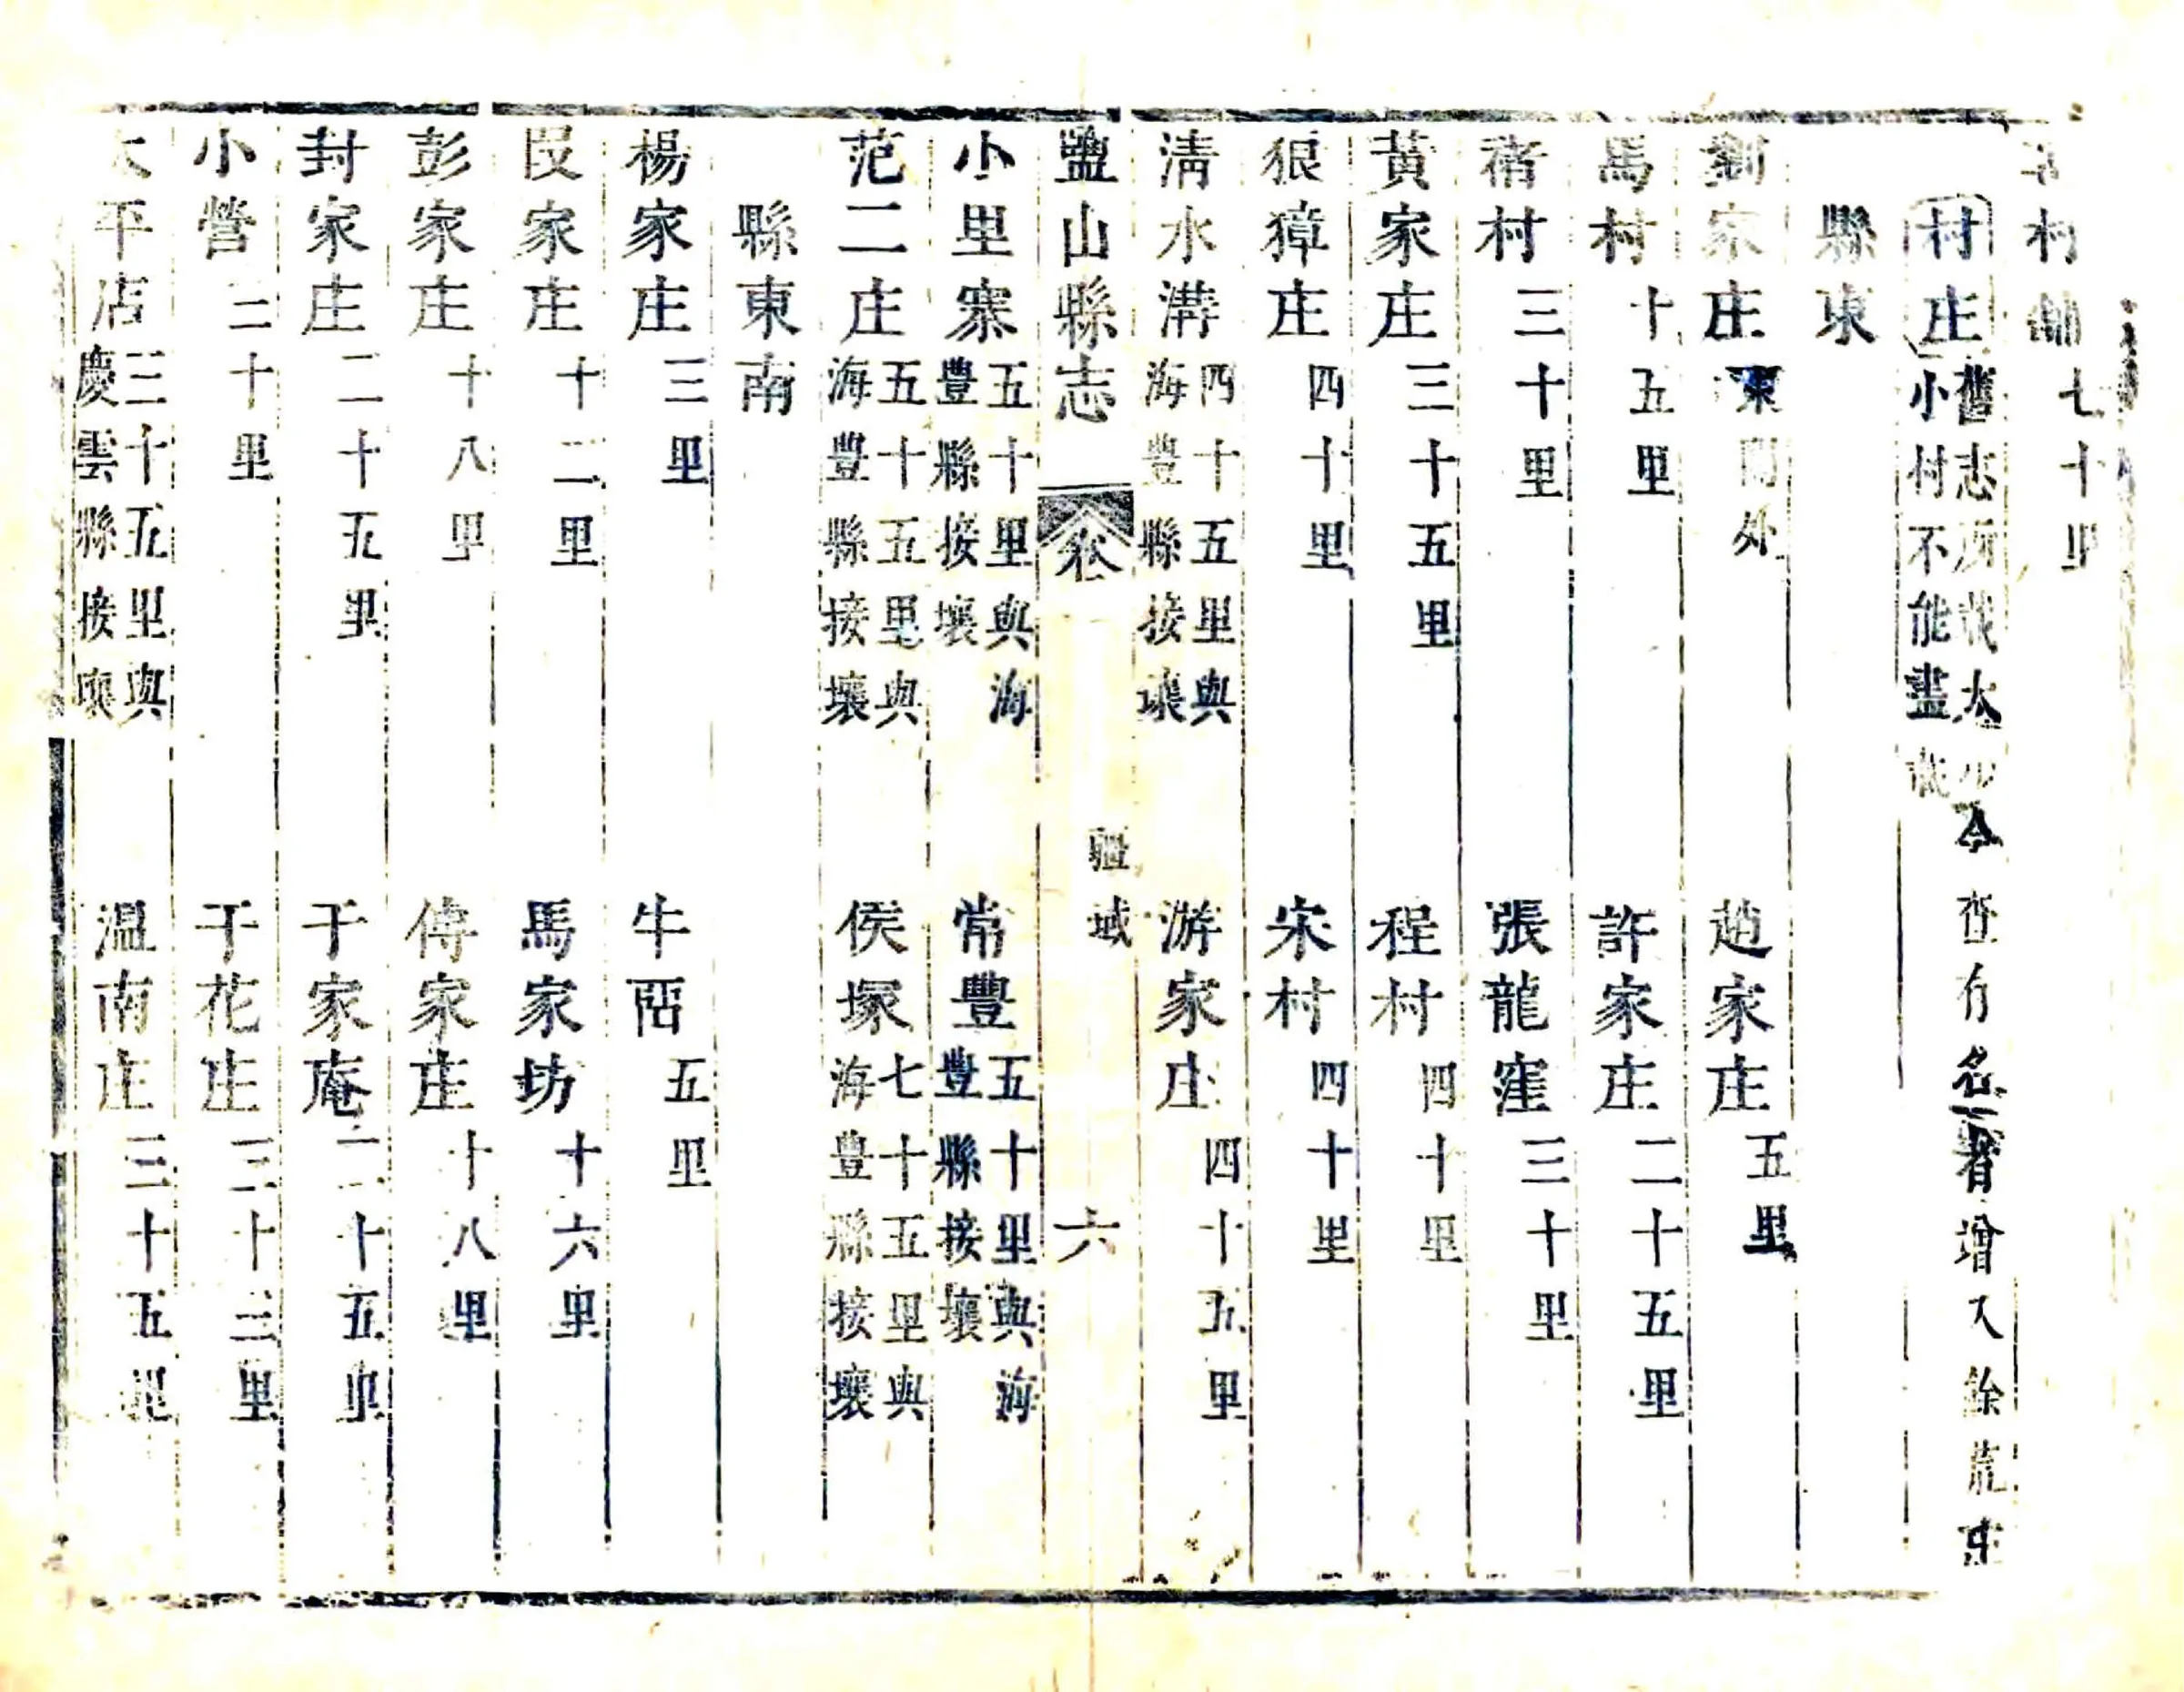 村鋪七十里
村庄舊志所載大小今查有名者增入餘荒庄小村不能盡載
縣東
劉家庄東關外 趙家庄五里
馬村十五里 許家庄二十五里
褚村三十里 張龍窪三十里
黃家庄三十五里 程村四十里
狼獐庄四十里 宋村四十里
淸水溝四十五里與海豐縣接壤 游家庄四十五里
鹽山縣志 卷 疆域 六
小里寨五十里與海豐縣接壤 常豐五十里與海豐縣接壤
范二庄五十五里與海豐縣接壤 侯塚七十五里與海豐縣接壤
縣東南
楊家庄三里 牛 五里
段家庄十二里 馬家坊十六里
彭家庄十八里 傅家庄十八里
封家庄二十五里 于家庵二十五里
小營二十里 于花庄三十三里
太平店三十五里與慶雲縣接壤 溫南庄三十五里